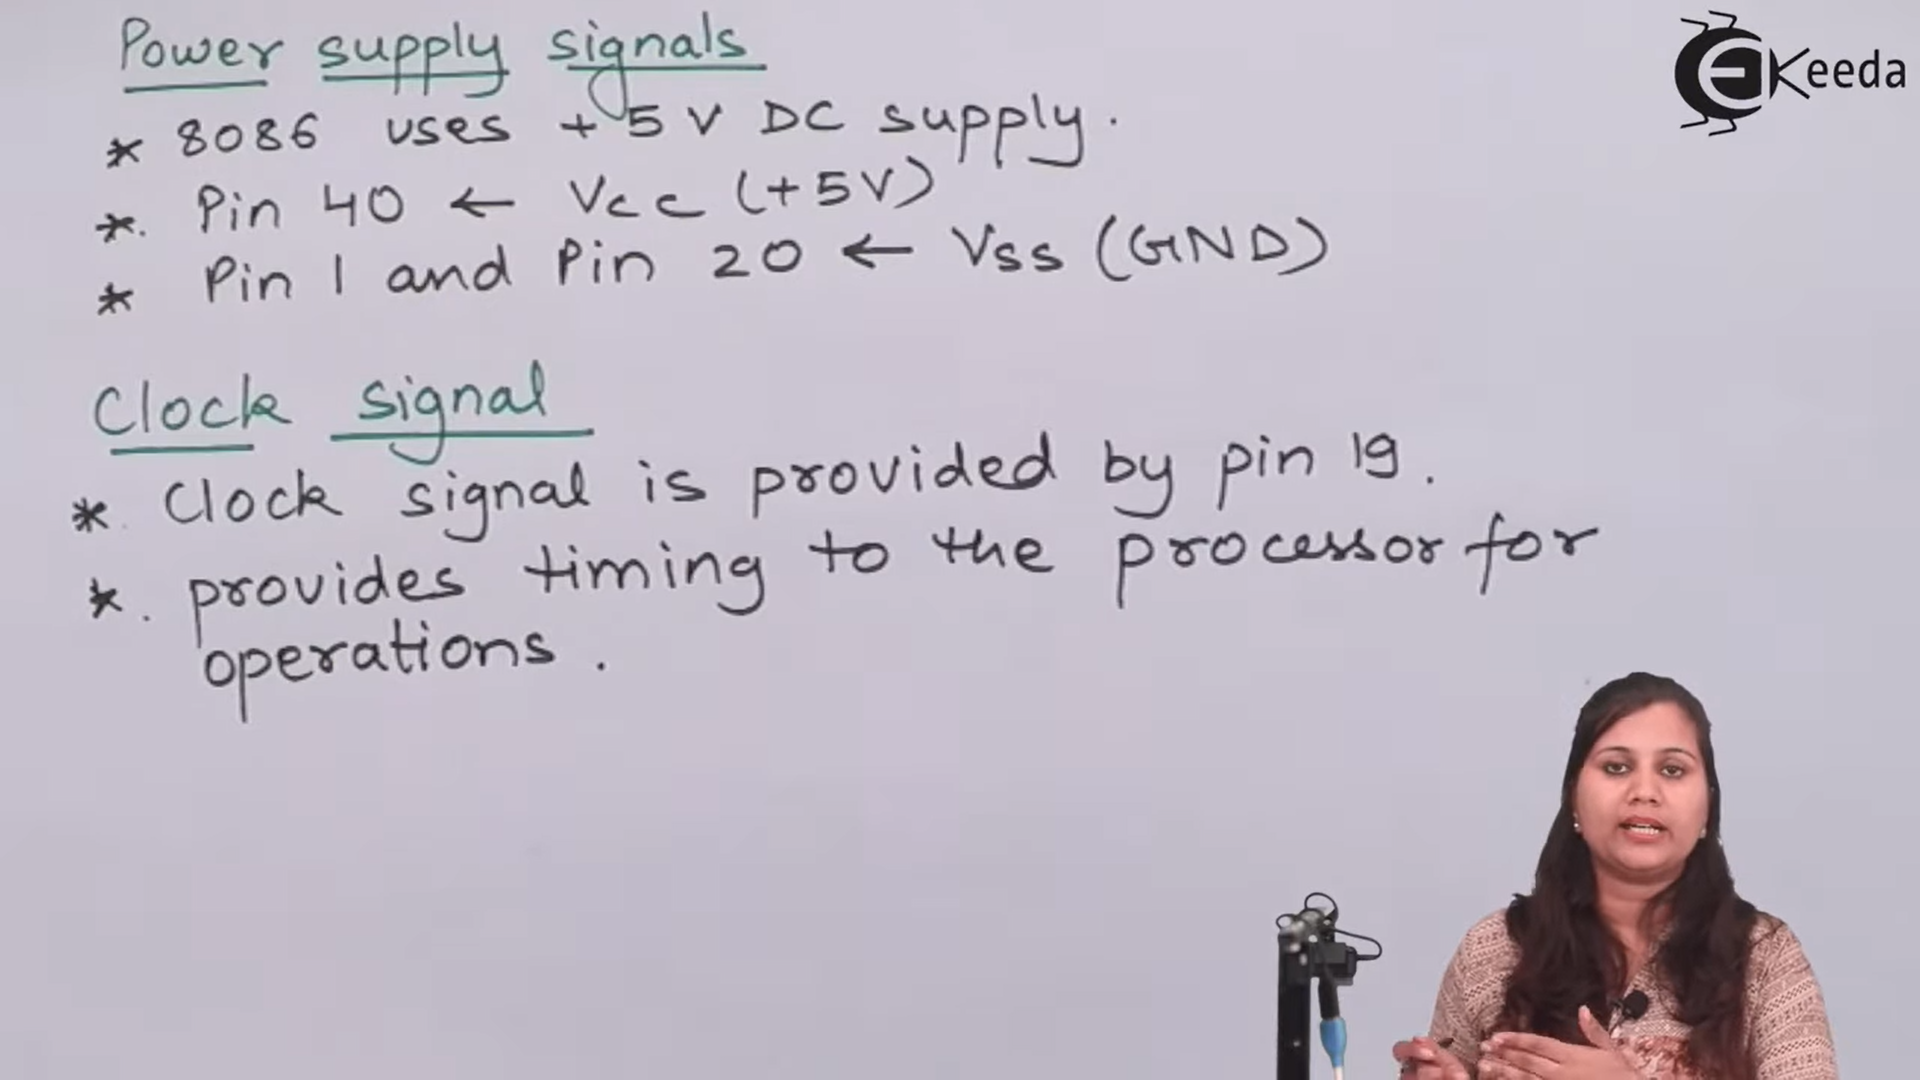 Power supply signals
EKeeda
* 8086 uses +5V DC supply.
*. Pin 40 ← Vcc (+5V)
* Pin 1 and Pin 20 ← Vss (GND)
Clock signal
* Clock signal is provided by pin 19.
*. provides timing to the processor for
operations.